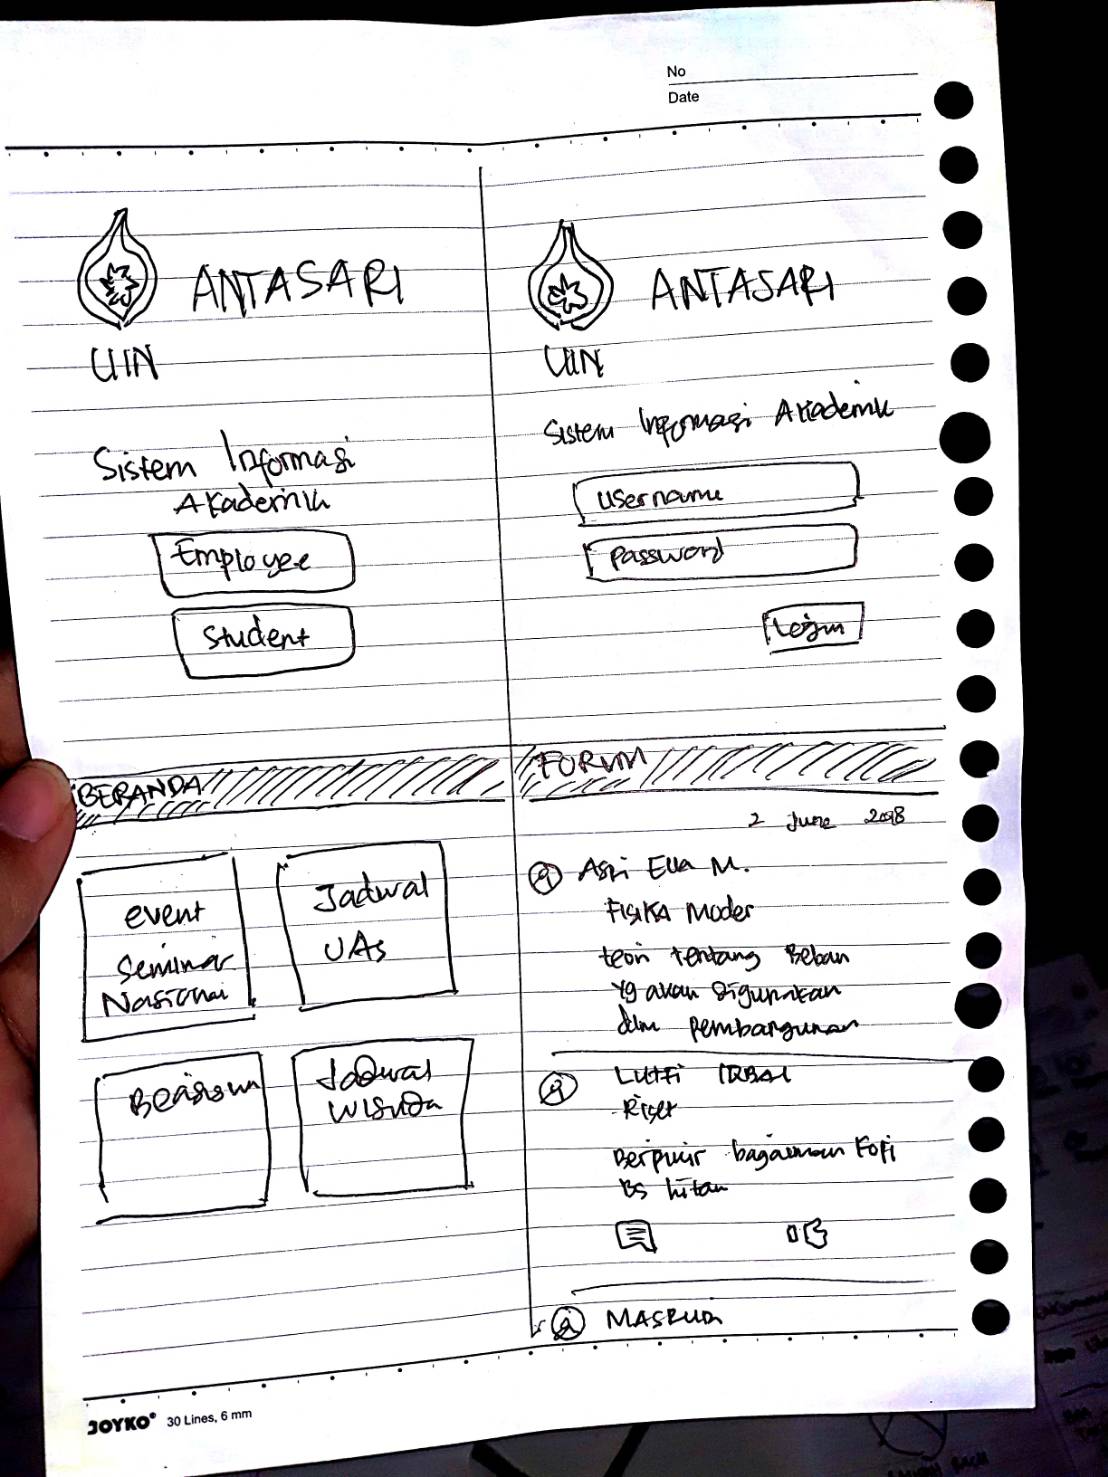 No
Date
ANTASARI
UIN
Sistem Informasi
Akademik
Employee
Student
ANTASARI
UIN
Sistem Informasi Akademik
username
password
Login
BERANDA
event
Seminar
Nasional
Jadwal
UAS
Jadwal
Wisuda
FORUM
2 June
Asri Ella M.
Fisika Moder
teori tentang Beban
yg akan digunakan
dlm pembangunan
Lutfi IQBAL
Riset
Berpikir bagaiman Kopi
Bs hitam
JOYKO® 30 Lines, 6 mm